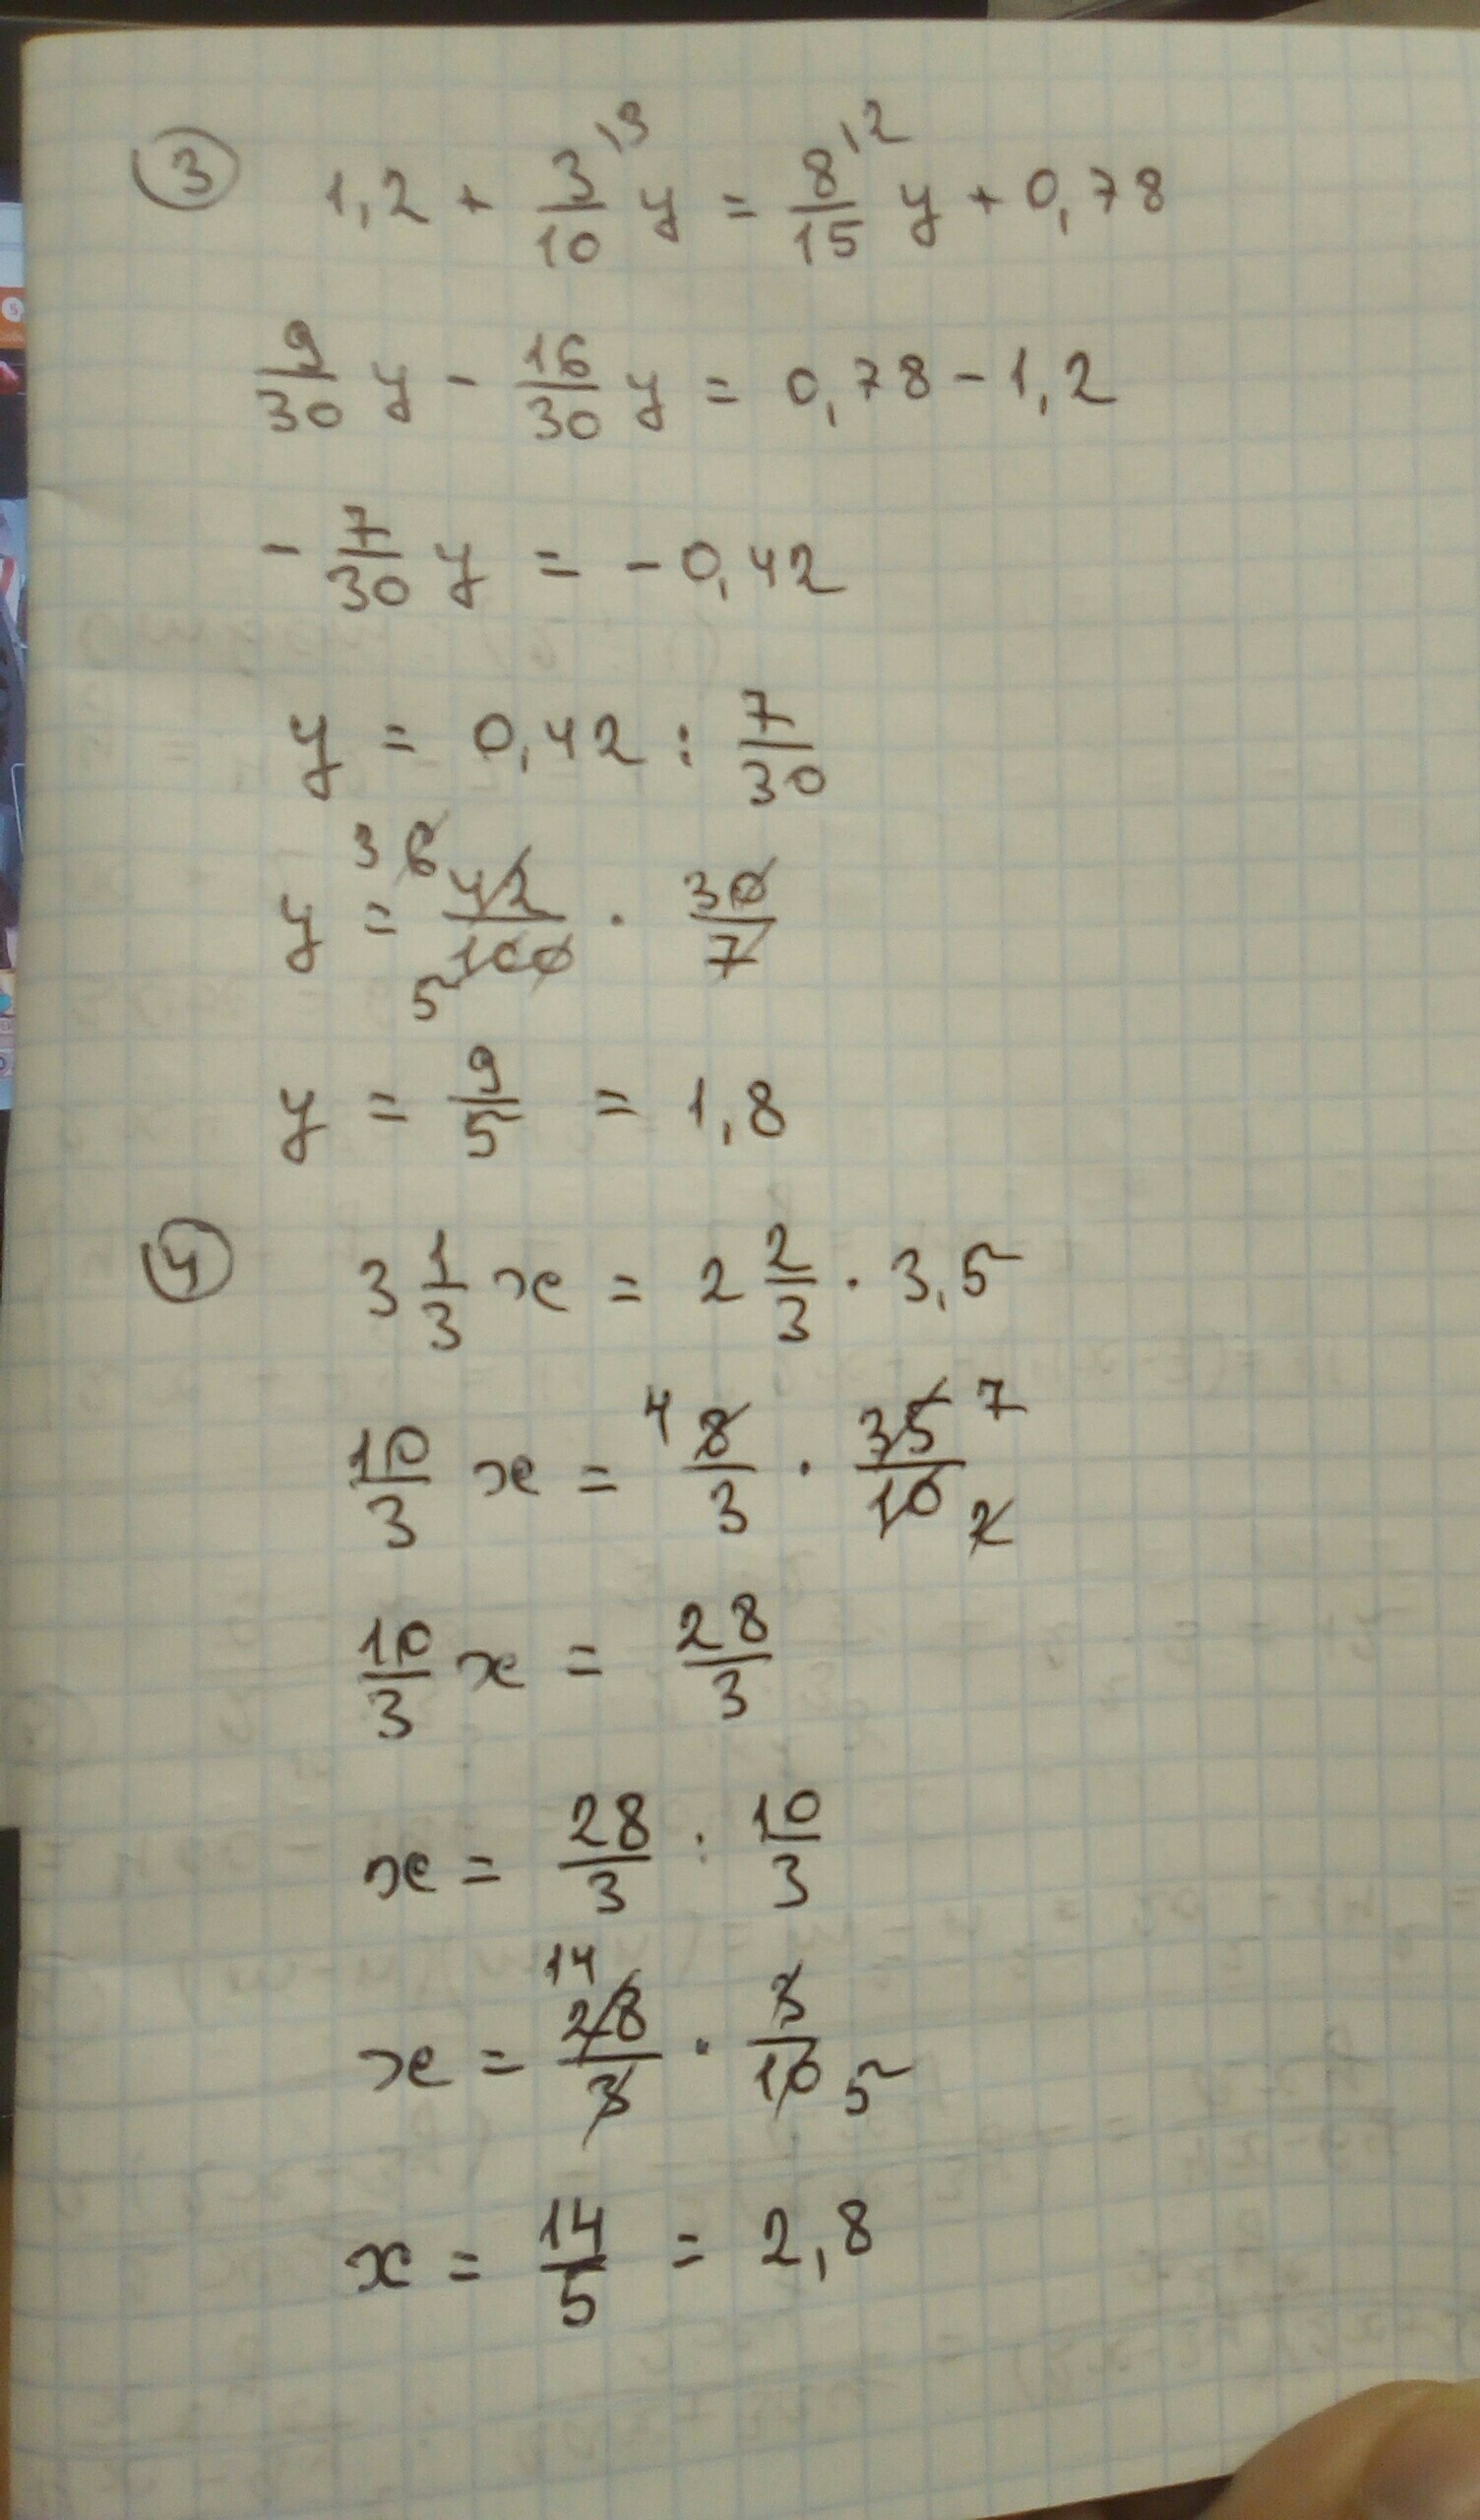 ③ 1,2 + 3/10 ⁾³ y = 8/15 ⁾² y + 0,78
9/30 y - 16/30 y = 0,78 - 1,2
- 7/30 y = - 0,42
y = 0,42 : 7/30
3 6
y = 42/100 · 30/7
5
y = 9/5 = 1,8
④ 3 1/3 x = 2 2/3 · 3,5
10/3 x = 4 8/3 · 35/10 7 2
10/3 x = 28/3
x = 28/3 : 10/3
14
x = 28/3 · 3/10 5
x = 14/5 = 2,8